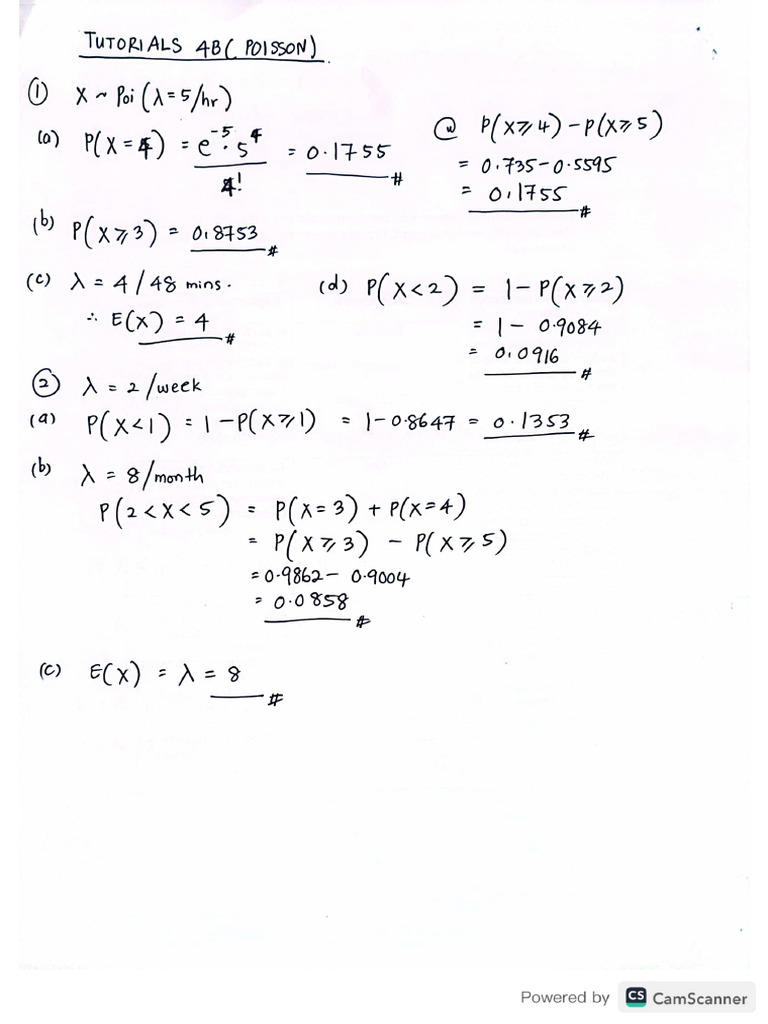 TUTORIALS 4B (POISSON).
① X ~ Poi (λ = 5/hr)
(a) P(X = 4) = e⁻⁵ · 5⁴ / 4! = 0.1755 #
@ P(X ⩾ 4) - P(X ⩾ 5)
= 0.735 - 0.5595
= 0.1755 #
(b) P(X ⩾ 3) = 0.8753 #
(c) λ = 4 / 48 mins.
∴ E(X) = 4 #
(d) P(X < 2) = 1 - P(X ⩾ 2)
= 1 - 0.9084
= 0.0916 #
② λ = 2 /week
(a) P(X < 1) = 1 - P(X ⩾ 1) = 1 - 0.8647 = 0.1353 #
(b) λ = 8/month
P(2 < X < 5) = P(X = 3) + P(X = 4)
= P(X ⩾ 3) - P(X ⩾ 5)
= 0.9862 - 0.9004
= 0.0858 #
(c) E(X) = λ = 8 #
Powered by CS CamScanner